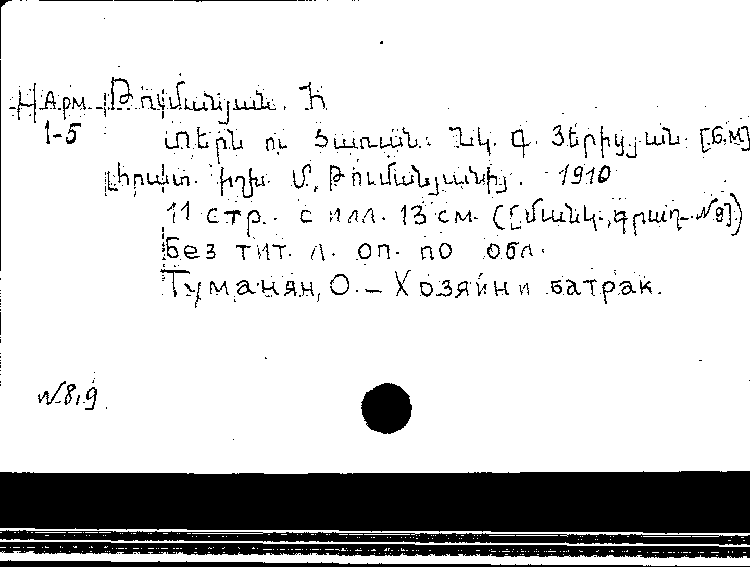 Н Арм Թումանյան. Հ
1-5 տերն ու Ծառան. Նկ. Գ. Յերիցյան. [Б.м]
հրատ. իշխ. Մ. Թումանյանից. 1910
11 стр. с илл. 13 см. ([Մանկ. գրադ. №9])
Без тит. л. оп. по обл.
Туманян, О. – Хозяин и батрак.
№8,9